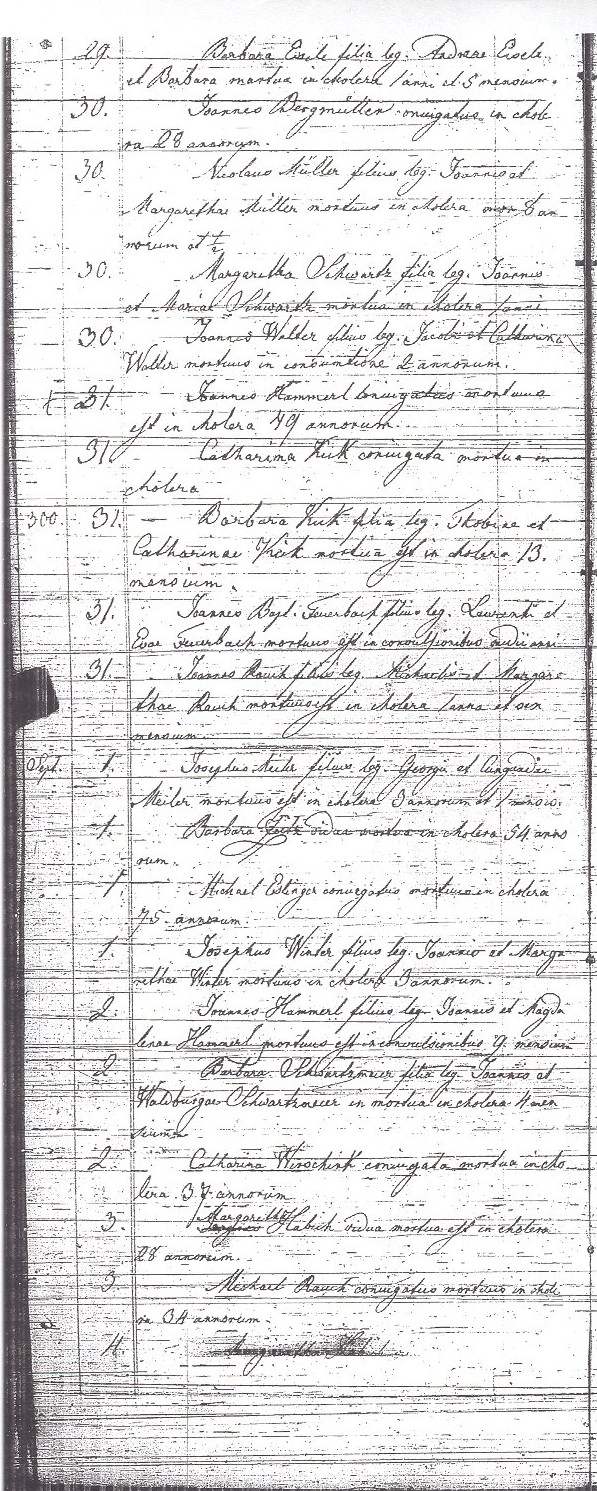 29. Barbara Eisele filia leg. Andreae Eisele
et Barbara mortua in cholera 1 anni et 5 mensium.
30. Joannes Bergmüller conuigatus in chole
ra 28 annorum.
30. Nicolaus Müller filius leg. Joannis et
Margarethae Müller mortuus in cholera 6 an
norum et ½
30. Margaretha Schwartz filia leg. Joannis
et Mariae Schwartz mortua in cholera 1 anni
30. Joannes Walter filius leg. Jacobi et Catharina
Walter mortuus in consumtione 2 annorum.
31. Joannes Hammerl conuigatus mortuus
est in cholera 49 annorum
31 Catharina Kuk conuigata mortua in
cholera
300. 31. Barbara Kuk filia leg. Thobiae et
Catharinae Kuk mortua est in cholera 13.
mensium.
31. Joannes Bapt. Feuerbach filius leg. Laurenti et
Evae Feuerbach mortuus est in convulsionibus anni
31. Joannes Rauch filius leg. Michaelis et Margare
thae Rauch mortuus est in cholera 1 anni et sex
mensium
Sept. 1. Josephus Meiler filius leg. Georgii et Cungundae
Meiler mortuus est in cholera 3 annorum et 1 mensis.
1. Barbara vidua mortua in cholera 54 anno
rum.
1. Michael Eslinger conuigatus mortuus in cholera
75 annorum
1. Josephus Winter filius leg. Joannis et Marga
rethae Winter mortuus in cholera 3 annorum.
2. Joannes Hammerl filius leg. Joannis et Magda
lenae Hammerl mortuus est in convulsionibus 9 mensium
2 Barbara Schwartzmeier filia leg. Joannis et
Waldburgae Schwartzmeier in mortua in cholera 4 men
sium
2. Catharina Wirschink conuigata mortua in cho
lera 37 annorum
3. Margaretha Habich vidua mortua est in cholera
28 annorum.
3 Michael Rauch conuigatus mortuus in chole
ra 34 annorum.
4.